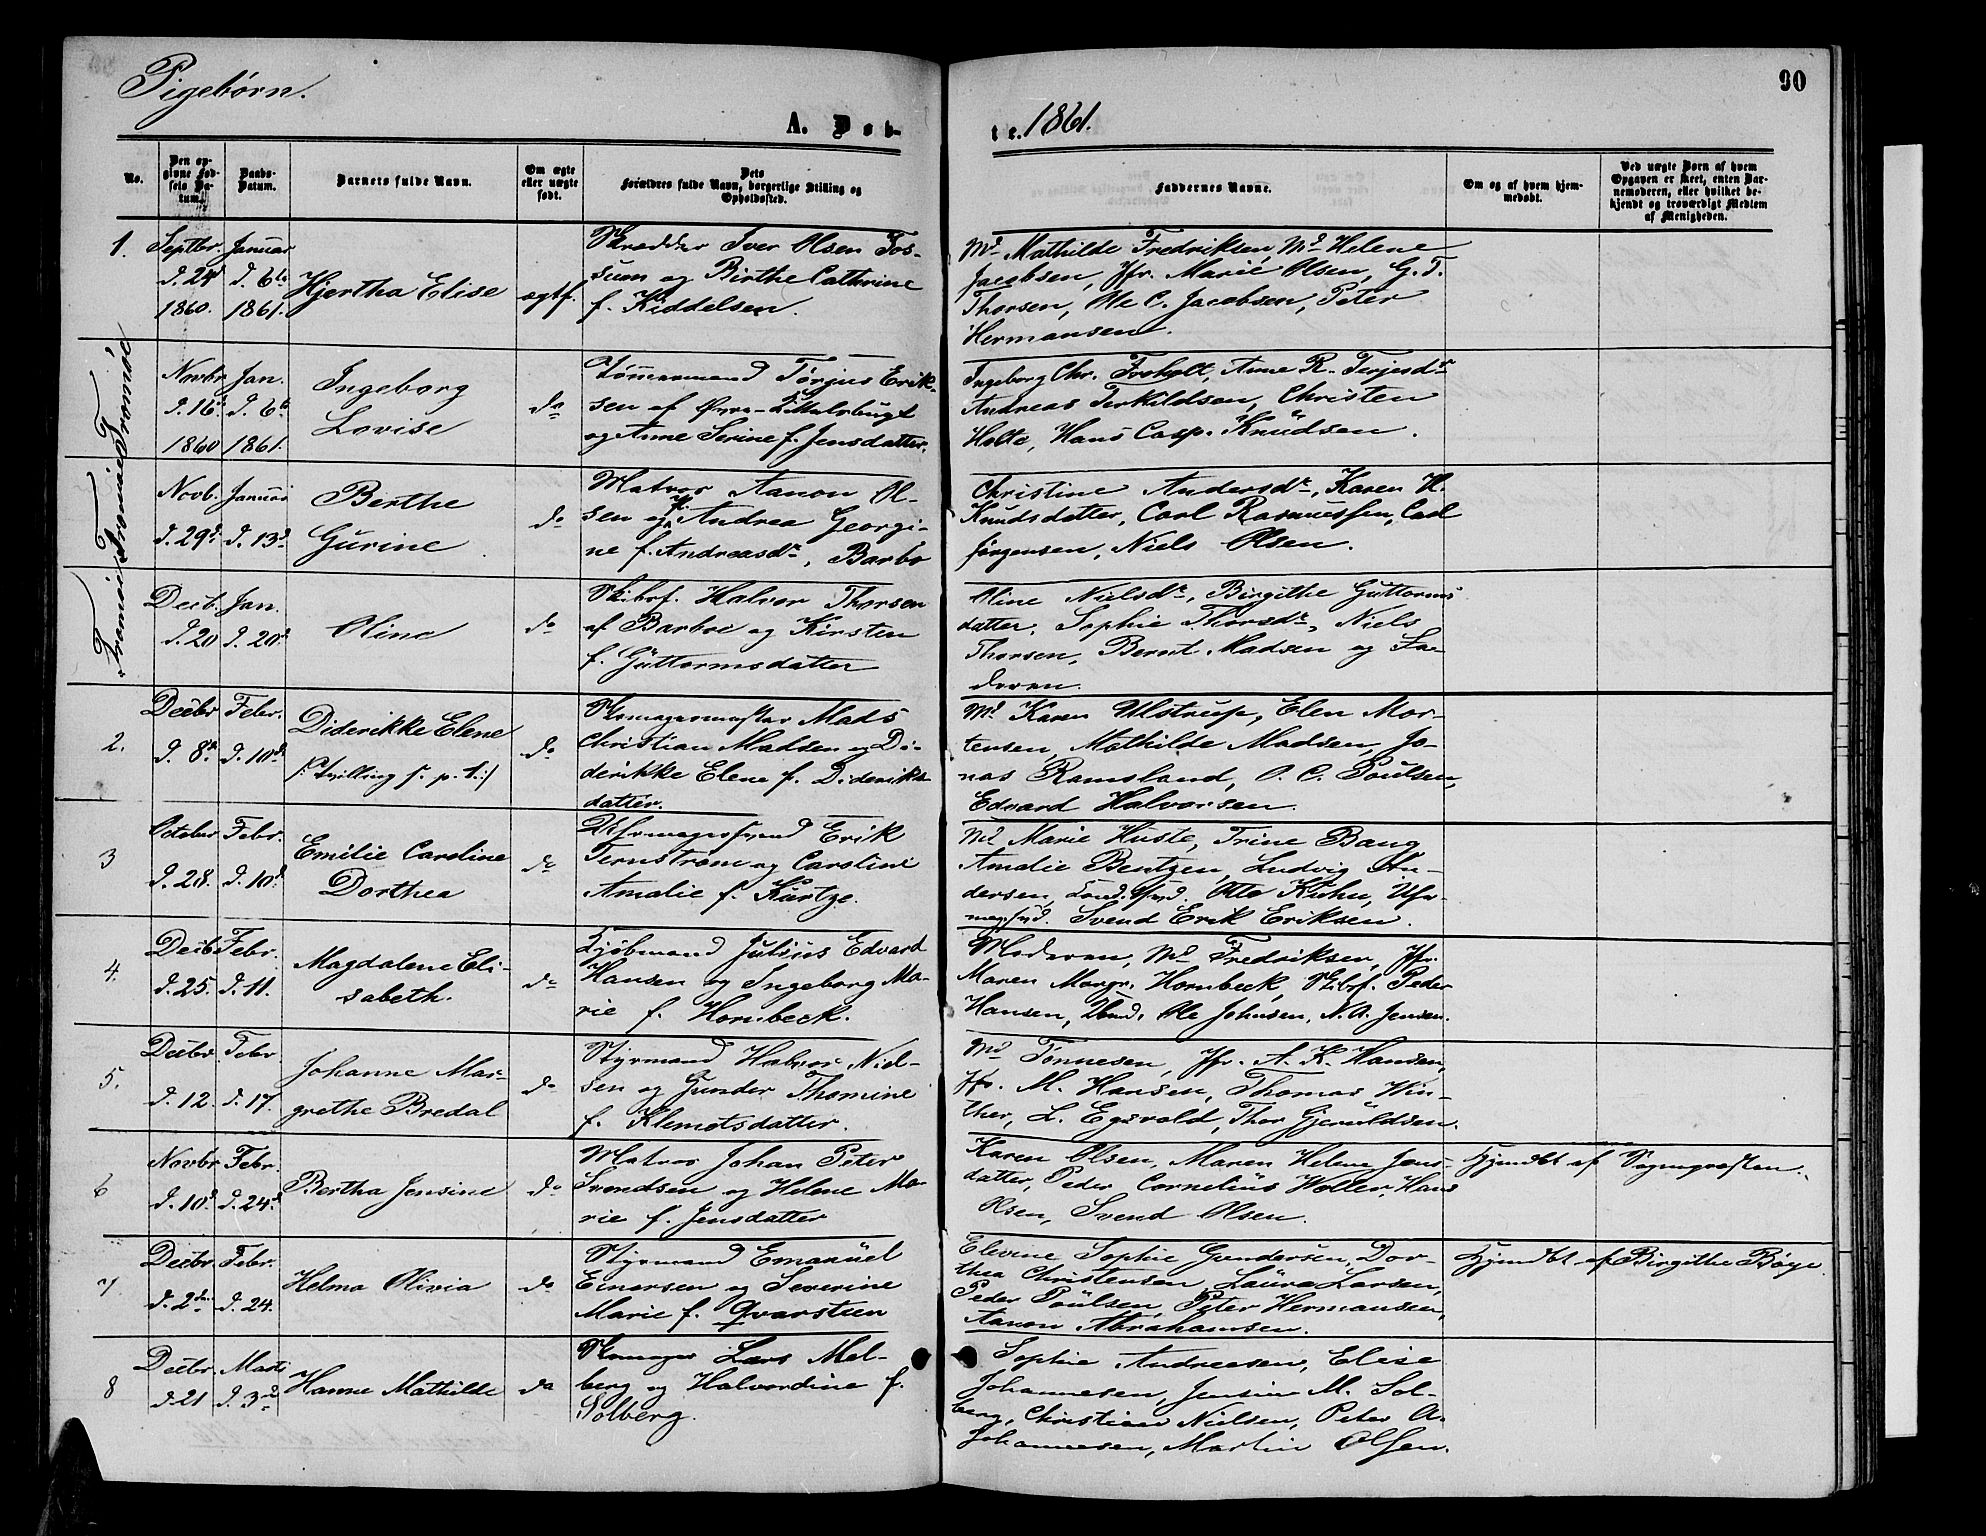 Pigebørn.
90
A. Døb-
te. 1861.
No.
Den op-
givne Fød-
sels Da-
tum.
Daabs-
Datum.
Barnets fulde Navn.
Om ægte
eller uægte
født.
Dets
Forældres fulde Navn, borgerlige Stilling og
Opholdssted.
Faddernes Navne.
Om og af hvem hjem-
medøbt.
Ved uægte Børn af hvem
Opgaven er skeet, enten Bar-
nemoderen, eller hvilket be-
kjendt og troværdigt Medlem
af Menigheden.
1.
Septbr.
d. 24
1860.
Januar
d. 6te
1861.
Hjertha Elise
ægtf.
Skrædder Iver Olsen Fos-
sum og Birthe Cathrine
f. Kiddelsen.
Md Mathilde Fredriksen, Md Helene
Jacobsen, Jfr. Marie Olsen, G. T.
Thorsen, Ole C. Jacobsen, Peter
Hermansen.
Tromøe
Novbr
d. 16
1860
Jan.
d. 6te
1861.
Ingeborg
Lovise
do
Tømmermand Tørjus Erik-
sen af
og Anne Serine f. Jensdatter.
Ingeborg Chr. Froholt, Anne R. Terjesdr
Andreas Terkildsen, Christen
Holte, Hans Casp. Knudsen.
Tromøe
Novb.
d. 29d
Januar
d. 13d
Berthe
Gurine
do
Matros Aanon Ol-
sen og Andrea Georgi-
ne f. Andreasdr, Barbo
Christine Andersdr, Karen H.
Knudsdatter, Carl Rasmussen, Carl
Jørgensen, Niels Olsen.
Tromøe
Decb.
d. 20
Jan.
d. 20d
Oline
do
Skibsf. Halvor Thorsen
af Barboe og Kirsten
f. Guttormsdatter
Oline Nielsdr, Birgithe Guttorms
datter, Sophie Thorsdr, Niels
Thorsen, Berent Madsen og Fa-
deren.
2.
Decbr
d. 8d
Febr.
d. 10de
Diderikke Elene
/: Tvilling f. p. 1.:/
do
Skomagermester Mads
Christian Madsen og Di-
derikke Elene f. Dideriks
datter.
Md Karen Ulstrup, Elen Mor-
tensen, Mathilde Madsen, Jo-
nas Ramsland, O. C. Poulsen,
Edvard Halvorsen.
3
October
d. 28.
Febr.
d. 10d
Emilie Caroline
Dorthea
do
Uhrmagersvend Erik
Ternstrøm og Caroline
Amalie f. Kurtze.
Md Marie Huste, Trine Bang
Amalie Bentzen, Ludvig An-
dersen, Otto Kuhn, Uhr-
mag.svd. Svend Erik Eriksen.
4.
Decb.
d. 25.
Febr.
d. 11.
Magdalene Eli-
sabeth.
do
Kjøbmand Julius Edvard
Hansen og Ingeborg Ma-
rie f. Hornbeck.
Moderen, Md Fredriksen, Jfr.
Maren Margr. Hornbeck, Skibsf. Peder
Hansen, Ole Johnsen, N. A. Jensen.
5.
Decbr.
d. 12.
Febr
d. 17.
Johanne Mar-
grethe Bredal
do
Styrmand Halvor Niel-
sen og Gunder Thomine
f. Klemetsdatter.
Md Tønnesen, Jfr. A. K. Hansen,
Jfr. M. Hansen, Thomas Win-
ther, L. Egsvold, Thor Gjeruldsen.
6
Novbr
d. 10d
Febr.
d. 24d
Bertha Jensine
do
Matros Johan Peter
Svendsen og Helene Ma-
rie f. Jensdatter
Karen Olsen, Maren Helene Jens-
datter, Peder Cornelius Woller, Hans
Olsen, Svend Olsen.
Hjemdbt af Sognepresten.
7
Decbr.
d. 2den
Febr.
d. 24.
Helma Olivia
do
Styrmand Emanuel
Einersen og Severine
Marie f. Qvarstein
Elevine Sophie Gundersen, Dor-
thea Christensen, Laura Larsen,
Peder Poulsen, Peter Hermansen,
Aanon Abrahamsen.
Hjemdbt af Birgithe Bøye.
8
Decbr.
d. 21
Marts
d. 3d
Hanne Mathilde
do
Skomager Lars Mel-
berg og Halvordine f.
Solberg.
Sophie Andreasen, Elise
Johannesen, Jensine M. Sol-
berg, Christian Nielsen, Peter A.
Johannesen, Martin Olsen.